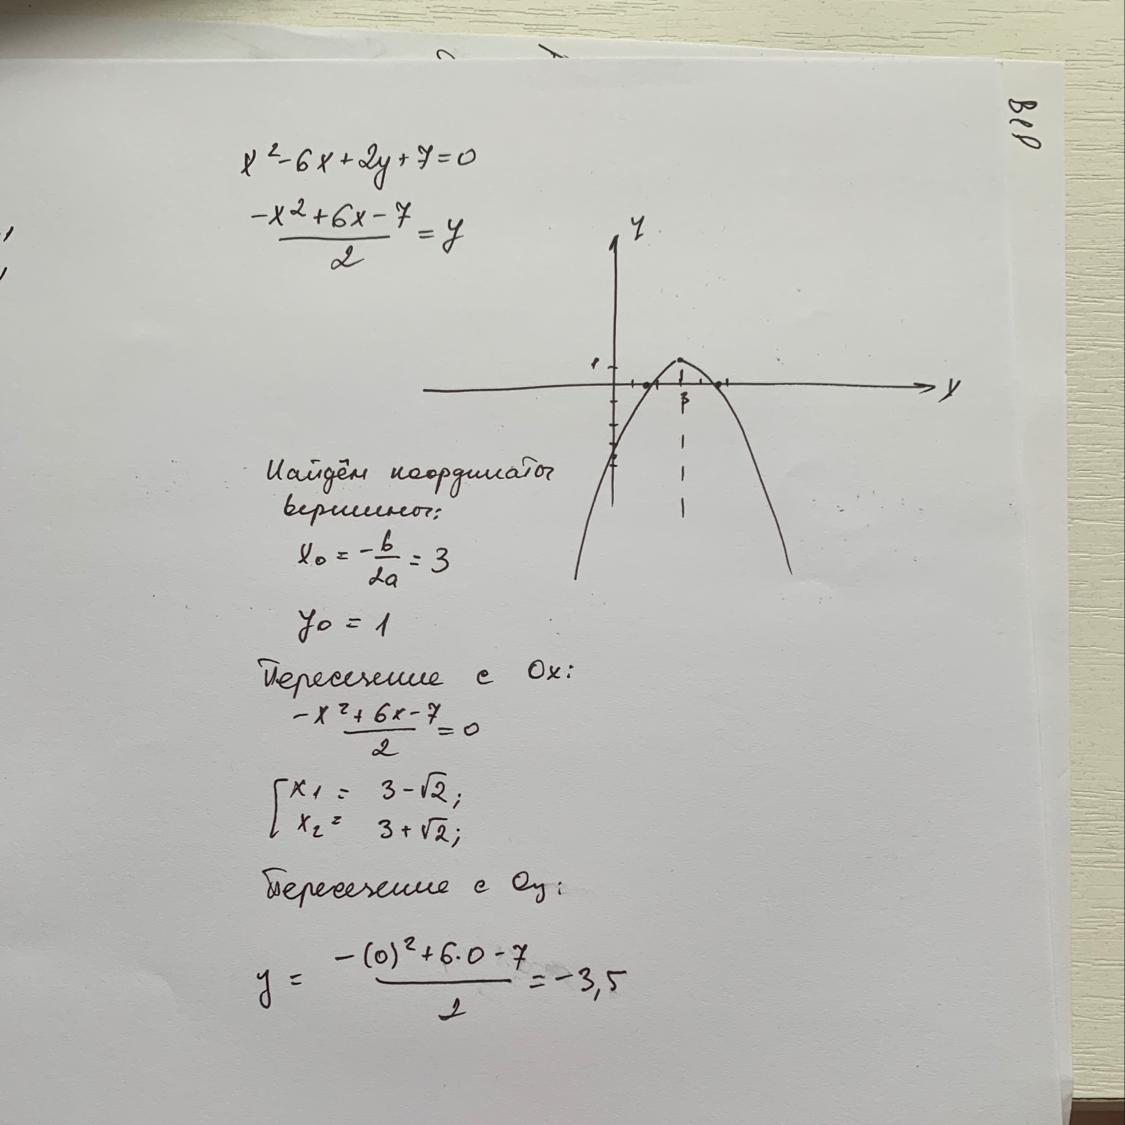 x²-6x+2y+7=0
(-x²+6x-7)/2 = y
y
1
3
x
Найдём координаты
вершины:
x₀ = -b/2a = 3
y₀ = 1
Пересечение с Ox:
(-x²+6x-7)/2 = 0
[x₁ = 3-√2;
x₂ = 3+√2;
Пересечение с Oy:
y = (-(0)²+6·0-7)/2 = -3,5